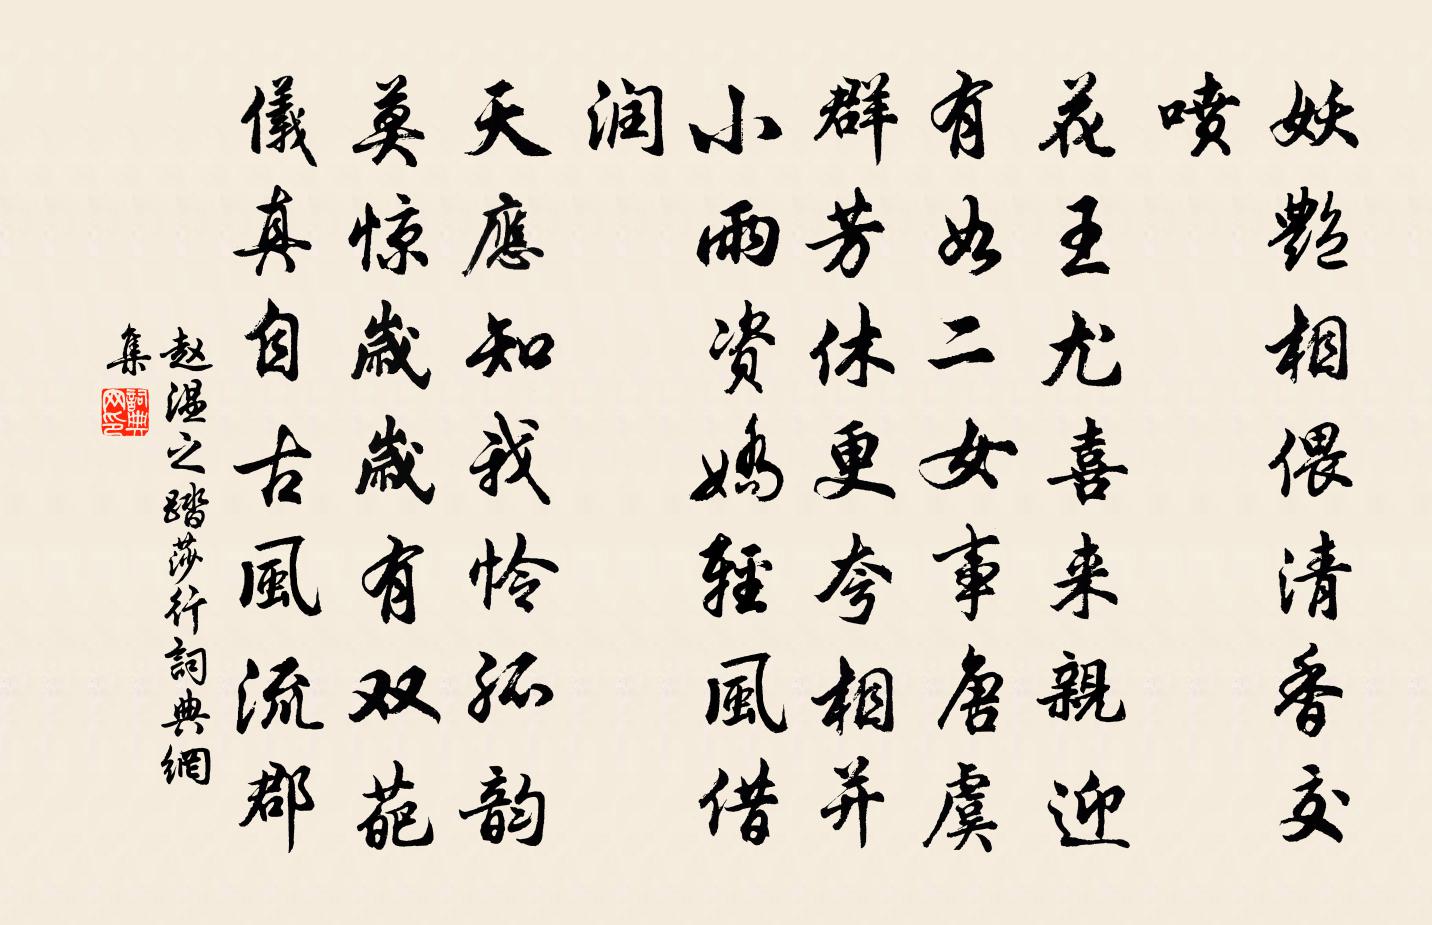 妖艶相偎清香交
喷
花王尤喜来親迎
有如二女事唐虞
群芳休更夸相并
小雨资嬌輕風借
润
天應知我怜孤韵
莫惊歲歲有双葩
儀真自古風流郡
赵温之踏莎行詞典網
集
詞典
网印